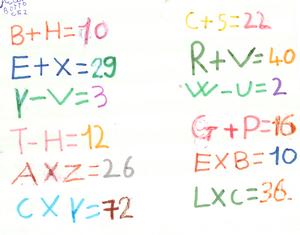 B+H=10
E+X=29
Y-V=3
T-H=12
AXZ=26
CXY=72
C+S=22
R+V=40
W-U=2
G+P=16
EXB=10
LXC=36.